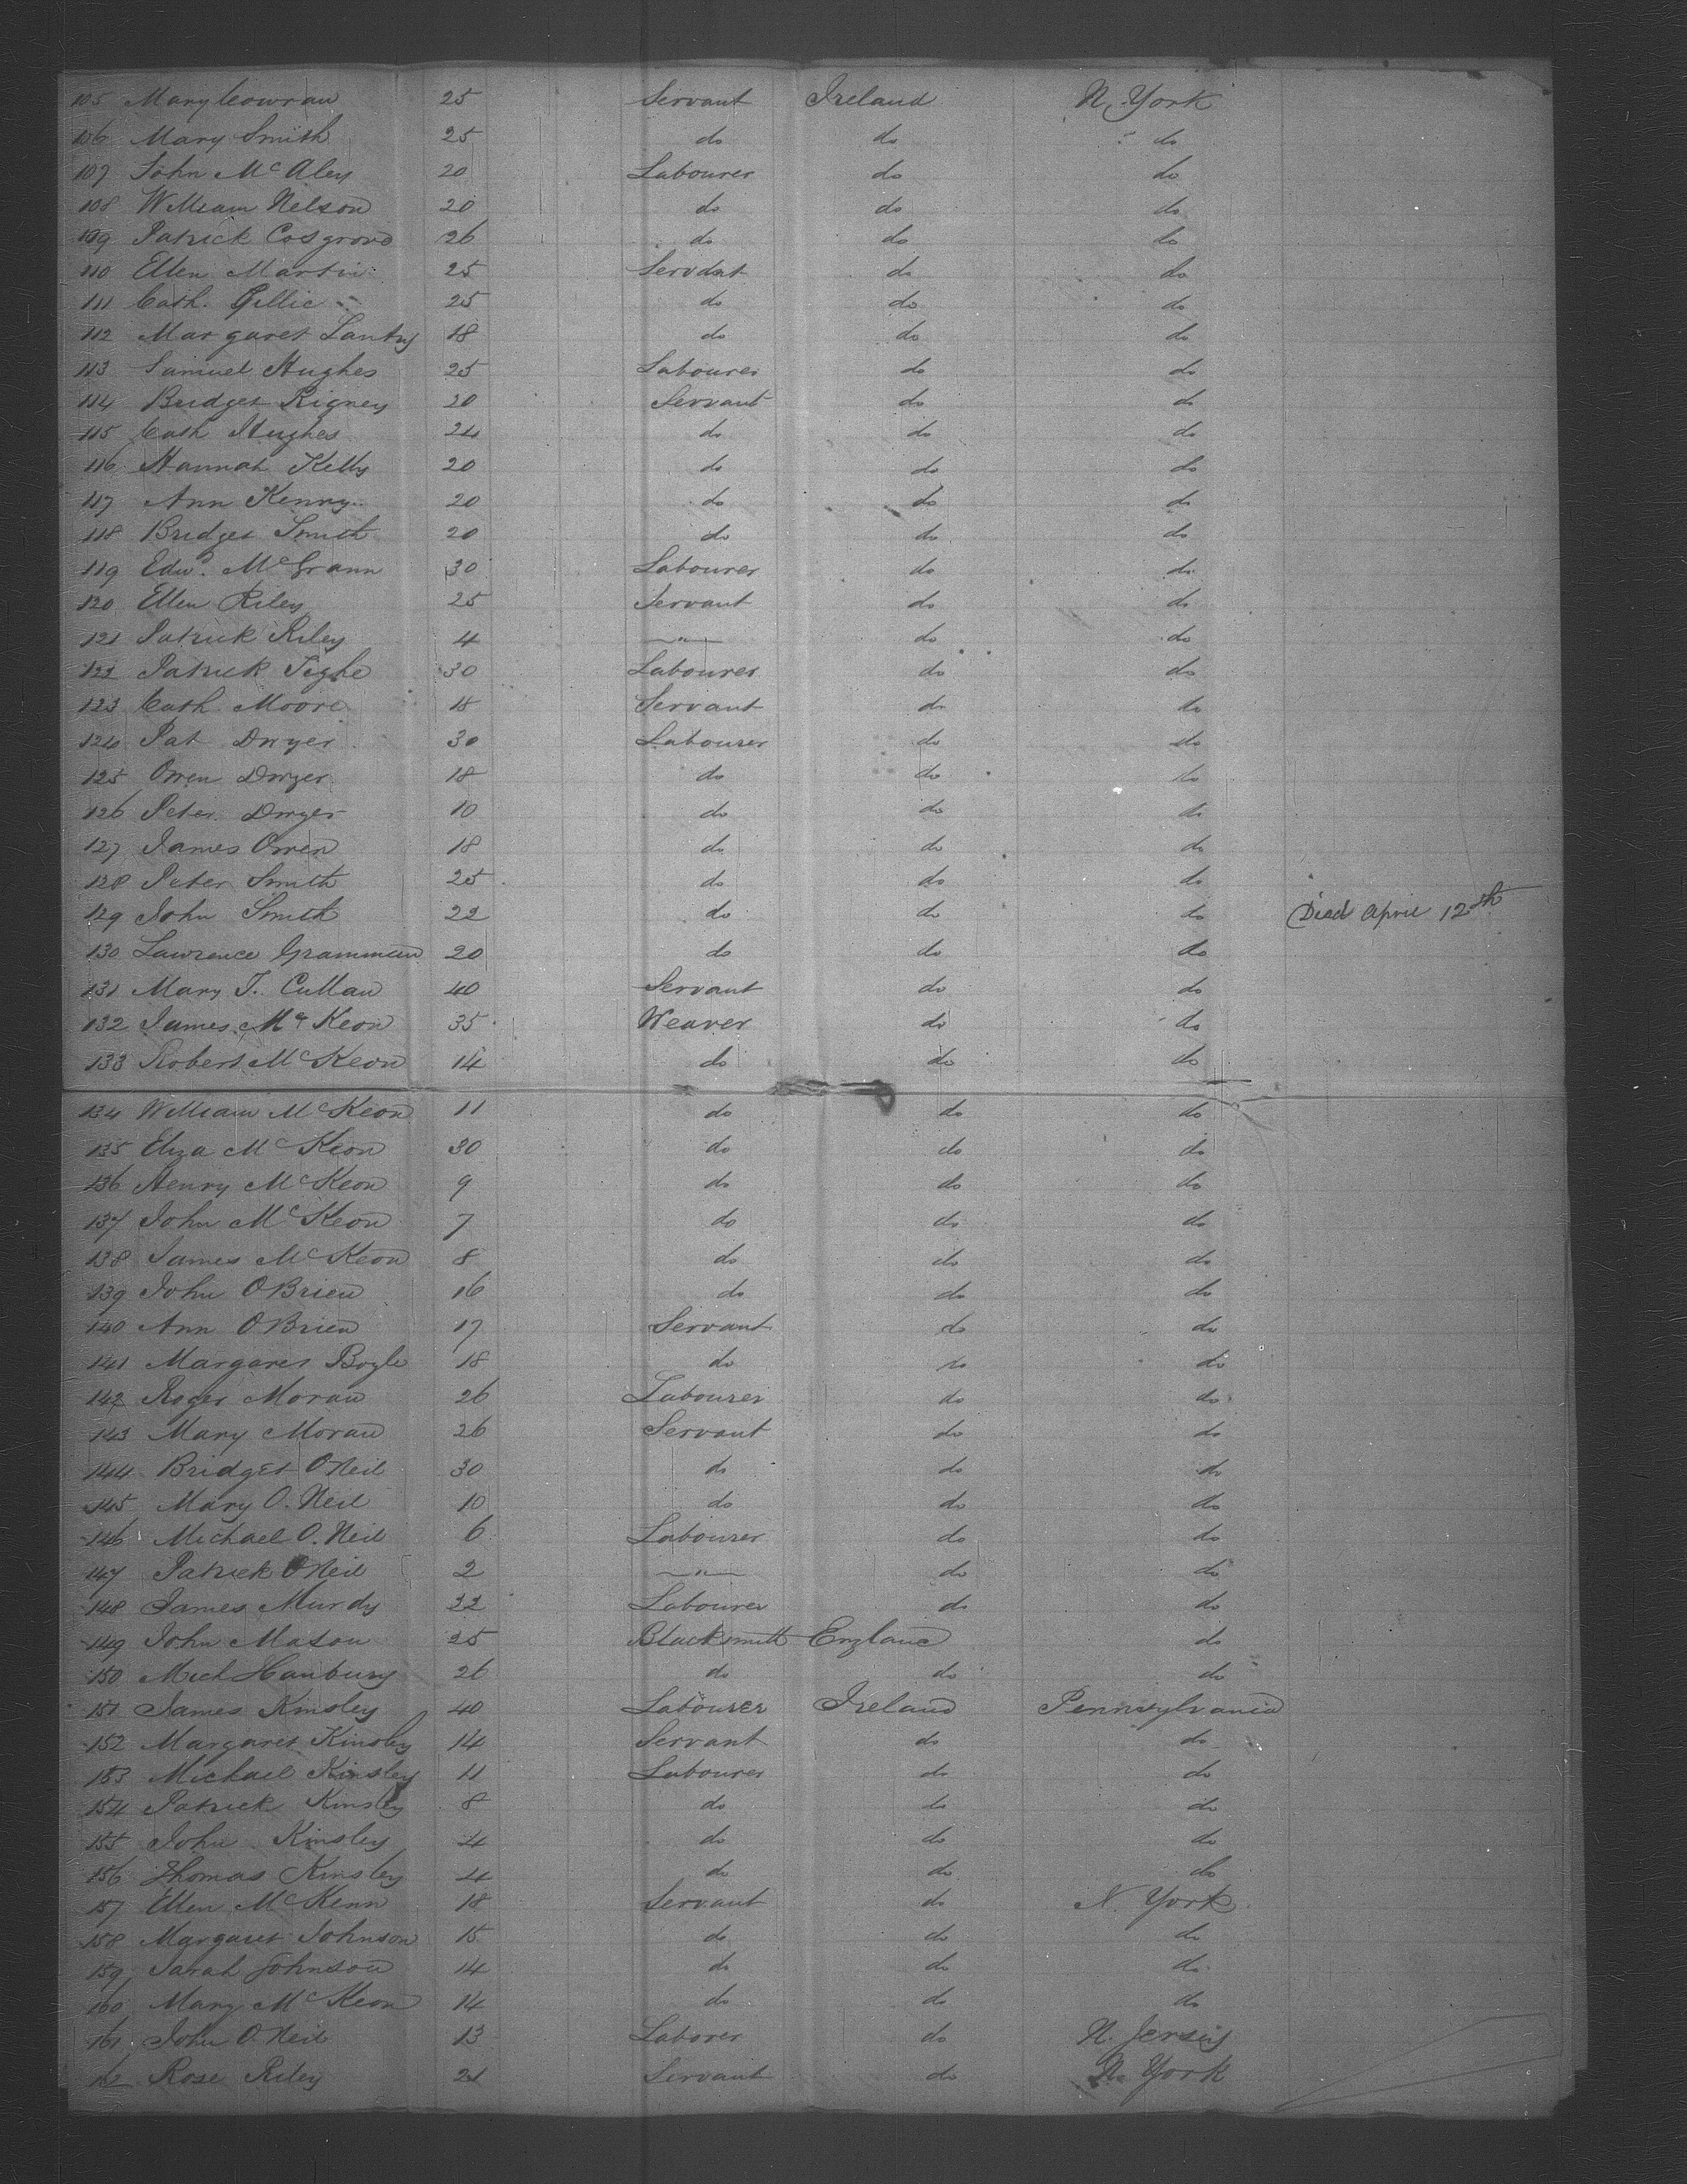 105 Mary Cowran 25 Servant Ireland N. York
106 Mary Smith 25 do do do
107 John McAley 20 Labourer do do
108 William Nelson 20 do do do
109 Patrick Cosgrove 26 do do do
110 Ellen Martin 25 Servant do do
111 Cath. Gillic 25 do do do
112 Margaret Lantry 18 do do do
113 Samuel Hughes 25 Labourer do do
114 Bridget Rigney 20 Servant do do
115 Cath Hughes 24 do do do
116 Hannah Kelly 20 do do do
117 Ann Kenny 20 do do do
118 Bridget Smith 20 do do do
119 Edwd. McGrann 30 Labourer do do
120 Ellen Riley 25 Servant do do
121 Patrick Riley 4 —"— do do
122 Patrick Tighe 30 Labourer do do
123 Cath Moore 18 Servant do do
124 Pat Dwyer 30 Labourer do do
125 Owen Dwyer 18 do do do
126 Peter Dwyer 10 do do do
127 James Owen 18 do do do
128 Peter Smith 25 do do do
129 John Smith 22 do do do Died April 12th
130 Lawrence 20 do do do
131 Mary T. Cullan 40 Servant do do
132 James McKeon 35 Weaver do do
133 Robert McKeon 14 do do do
134 William McKeon 11 do do do
135 Eliza McKeon 30 do do do
136 Henry McKeon 9 do do do
137 John McKeon 7 do do do
138 James McKeon 8 do do do
139 John OBrien 16 do do do
140 Ann OBrien 17 Servant do do
141 Margaret Boyle 18 do do do
142 Roger Moran 26 Labourer do do
143 Mary Moran 26 Servant do do
144 Bridget ONeil 30 do do do
145 Mary O. Neil 10 do do do
146 Michael O. Neil 6 Labourer do do
147 Patrick ONeil 2 —"— do do
148 James Murdy 22 Labourer do do
149 John Mason 25 Blacksmith England do
150 Mich Hanbury 26 do do do
151 James Kinsley 40 Labourer Ireland Pennsylvania
152 Margaret Kinsley 14 Servant do do
153 Michael Kinsley 11 Labourer do do
154 Patrick Kinsley 8 do do do
155 John Kinsley 4 do do do
156 Thomas Kinsley 4 do do do
157 Ellen McKenn 18 Servant do N. York
158 Margaret Johnson 15 do do do
159 Sarah Johnson 14 do do do
160 Mary McKeon 14 do do do
161 John O. Neil 13 Laborer do N. Jersey
162 Rose Riley 21 Servant do N. York